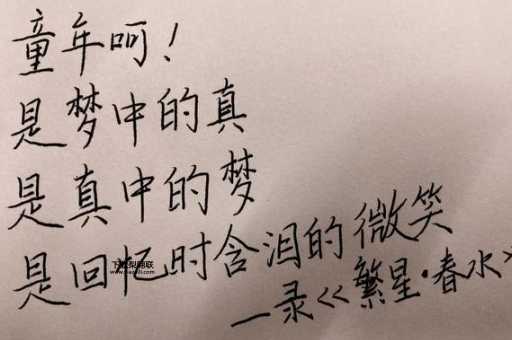 童年呵！
是梦中的真
是真中的梦
是回忆时含泪的微笑
一录《繁星·春水》